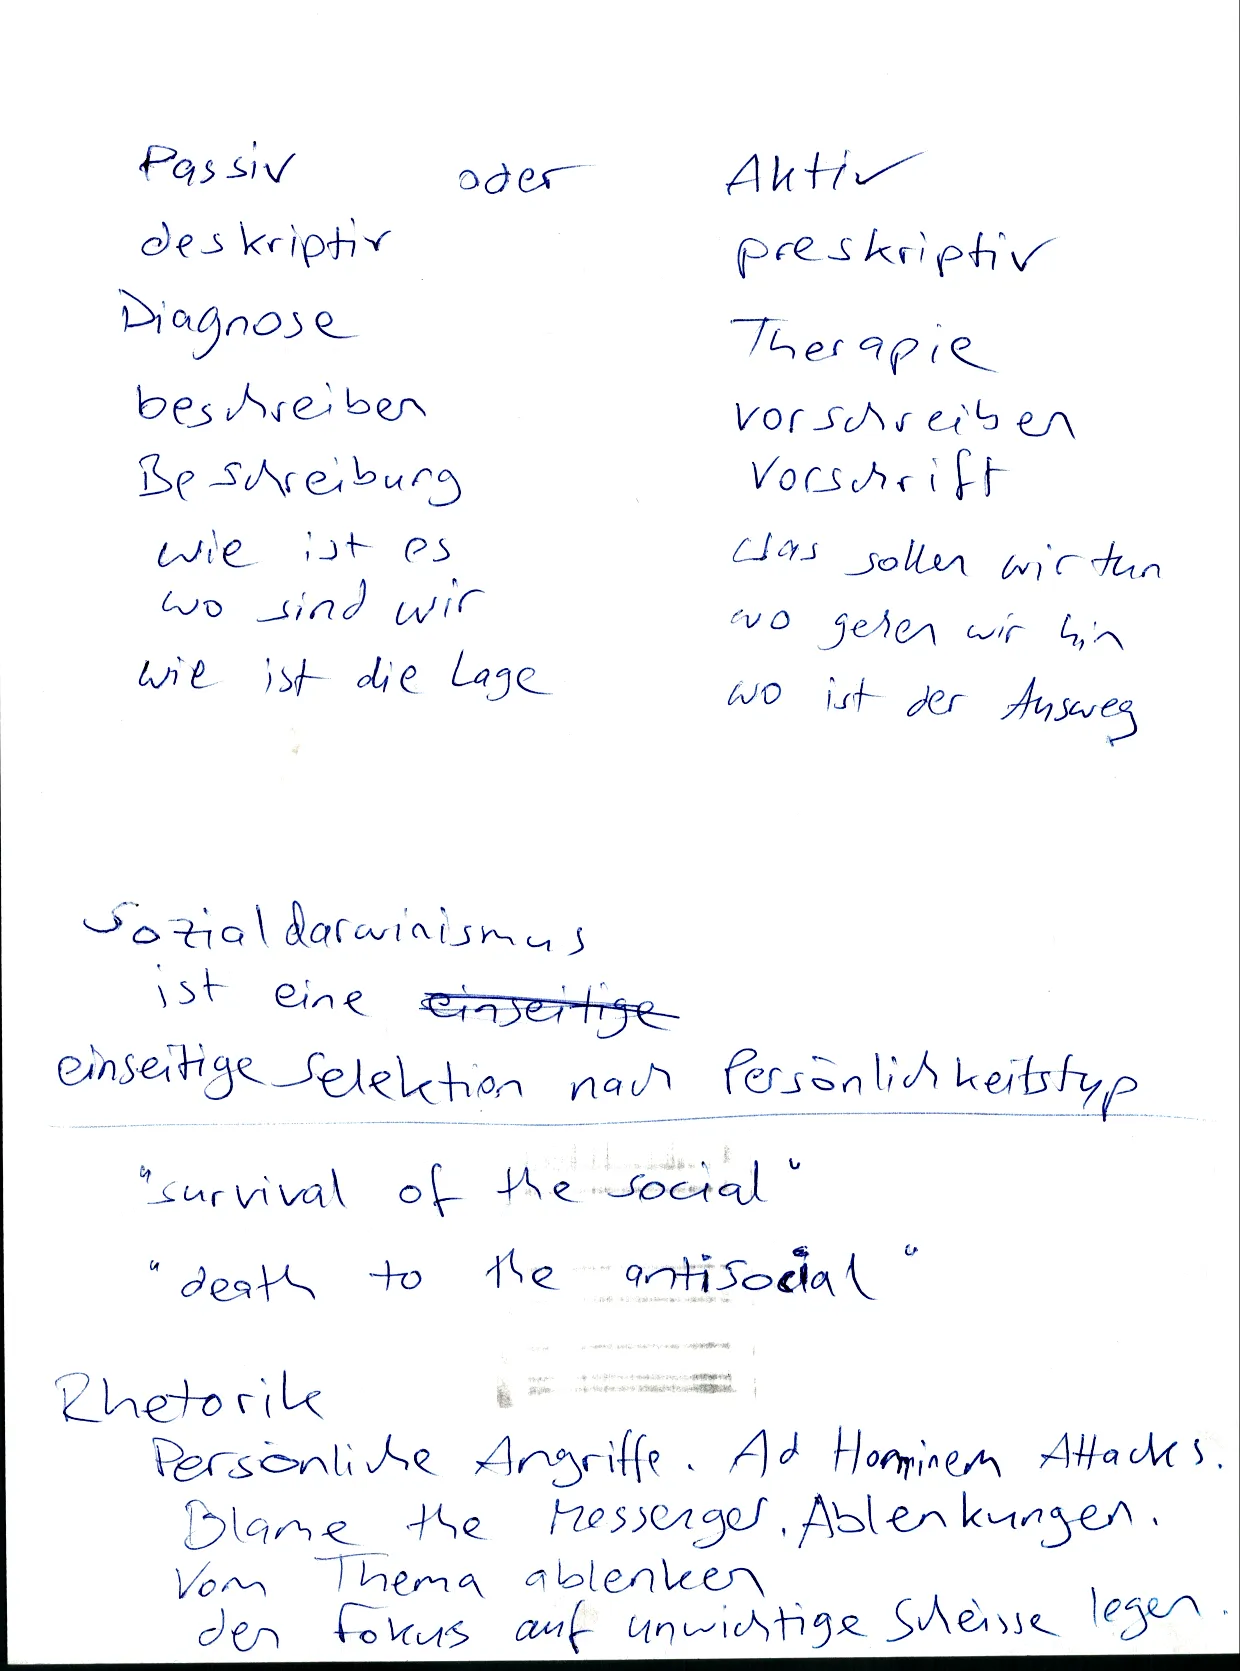 Passiv oder Aktiv
deskriptiv preskriptiv
Diagnose Therapie
beschreiben vorschreiben
Beschreibung Vorschrift
wie ist es was sollen wir tun
wo sind wir wo gehen wir hin
wie ist die Lage wo ist der Ausweg
Sozialdarwinismus
ist eine einseitige
einseitige Selektion nach Persönlichkeitstyp
"survival of the social"
"death to the antisocial"
Rhetorik
Persönliche Angriffe. Ad Hominem Attacks.
Blame the Messenger. Ablenkungen.
Vom Thema ablenken
den Fokus auf unwichtige Scheisse legen.